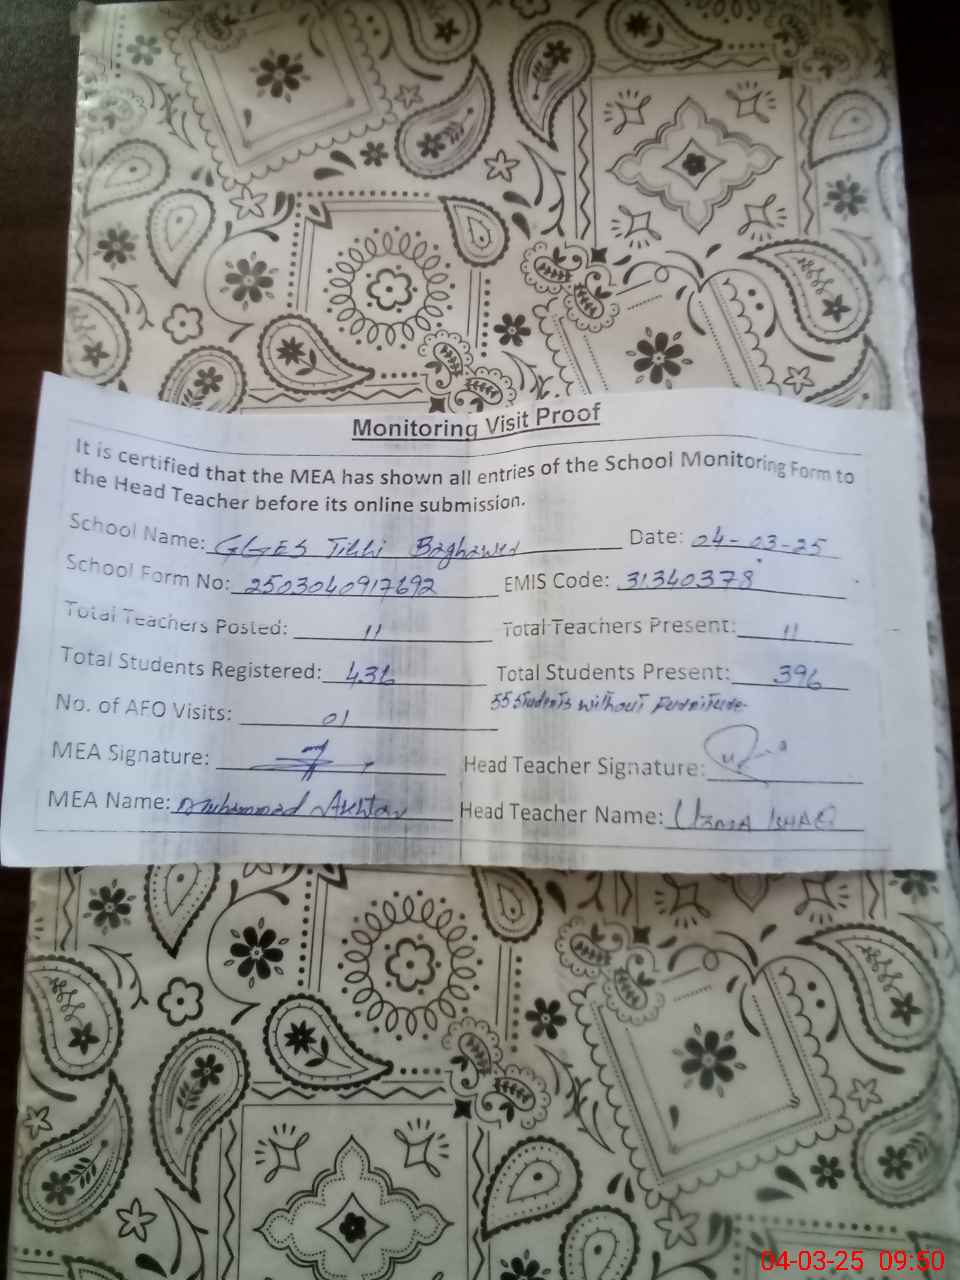 Monitoring Visit Proof
It is certified that the MEA has shown all entries of the School Monitoring Form to
the Head Teacher before its online submission.
School Name: GGES Tibbi Date: 04-03-25
School Form No: 2503040917692 EMIS Code: 31340378
Total Teachers Posted: 11 Total Teachers Present: 11
Total Students Registered: 436 Total Students Present: 396
55 Students without Furniture.
No. of AEO Visits: 01
MEA Signature: Head Teacher Signature:
MEA Name: Muhammad Akhtar Head Teacher Name: Uzma
04-03-25 09:50